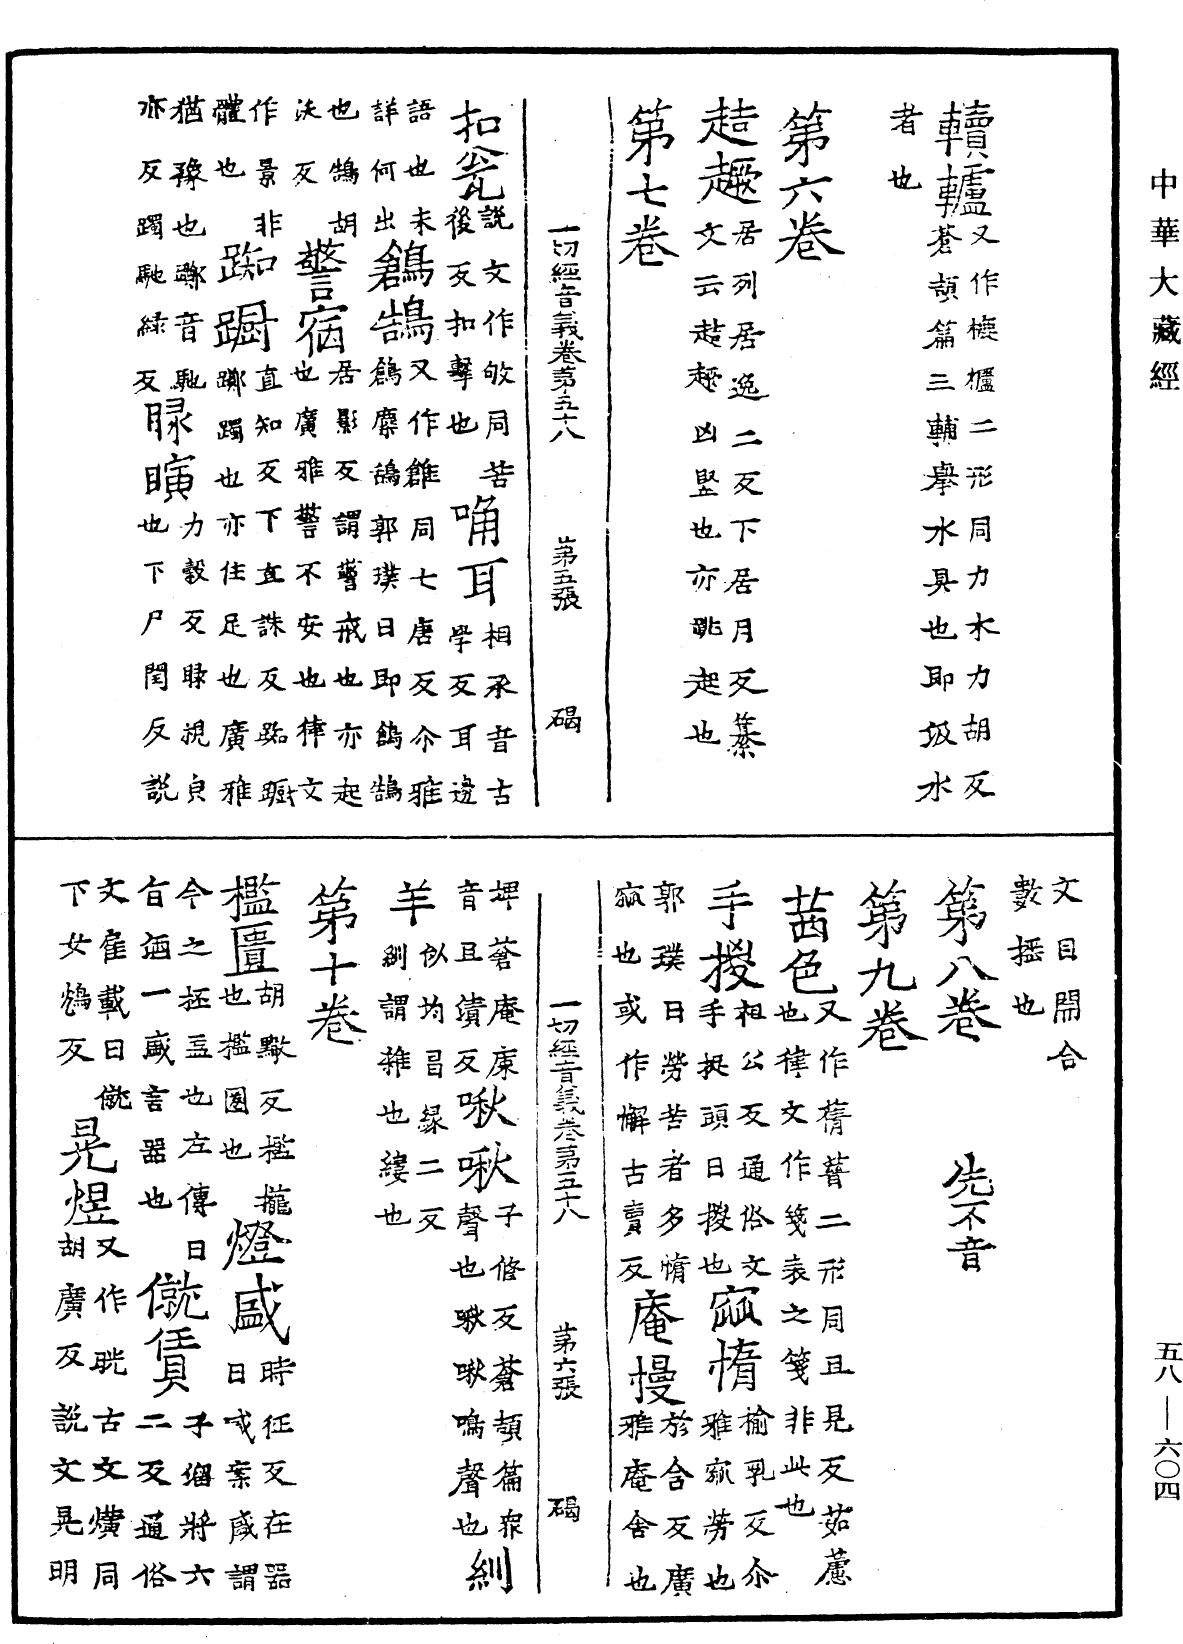 中華大藏經
轒轤又作樚櫨二形同力木力胡反
蒼頡篇三輔舉水具也即汲水
者也
第六卷
趌趣居列居逸二反下居月反纂
文云趌趣凶豎也亦跳起也
第七卷
一切經音義卷第五十八 第五張 碣
扣瓮說文作敂同苦
後反扣擊也
唃耳相承音古
學反耳邊
語也未
詳何出
鶬鵠又作鶬同七唐反尒雅
鶬麋鴰郭璞曰即鶬鵠
也鵠胡
沃反
警宿居影反謂警戒也亦起
也廣雅警不安也律文
作景非
體也
踟蹰直知反下直誅反踟蹰
躑躅也亦住足也廣雅
猶豫也躑音馳
亦反躅馳綠反
睩瞚力穀反睩視皃
也下尸閏反說
文目開合
數搖也
第八卷 先不音
第九卷
茜色又作蒨䔰二形同且見反茹藘
也律文作箋表之箋非此也
手㨑相公反通俗文
手捉頭曰㨑也
窳惰榆乳反尒
雅窳勞也
郭璞曰勞苦者多惰
窳也或作懈古賣反
庵慢於含反廣
雅庵舍也
埤蒼庵廡
音且漬反
啾啾子脩反蒼頡篇衆
聲也啾啾鳴聲也
紃
羊似均昌緣二反
紃謂雜也縷也
第十卷
檻匱胡黤反檻攏
也檻圈也
燈盛時征反在器
曰盛案盛謂
今之柸盂也左傳曰
旨酒一盛言器也
僦賃子溜將六
二反通俗
文雇載曰僦
下女鴆反
晃煜又作晄古文爌同
胡廣反說文晃明
一切經音義卷第五十八 第六張 碣
五八—六〇四